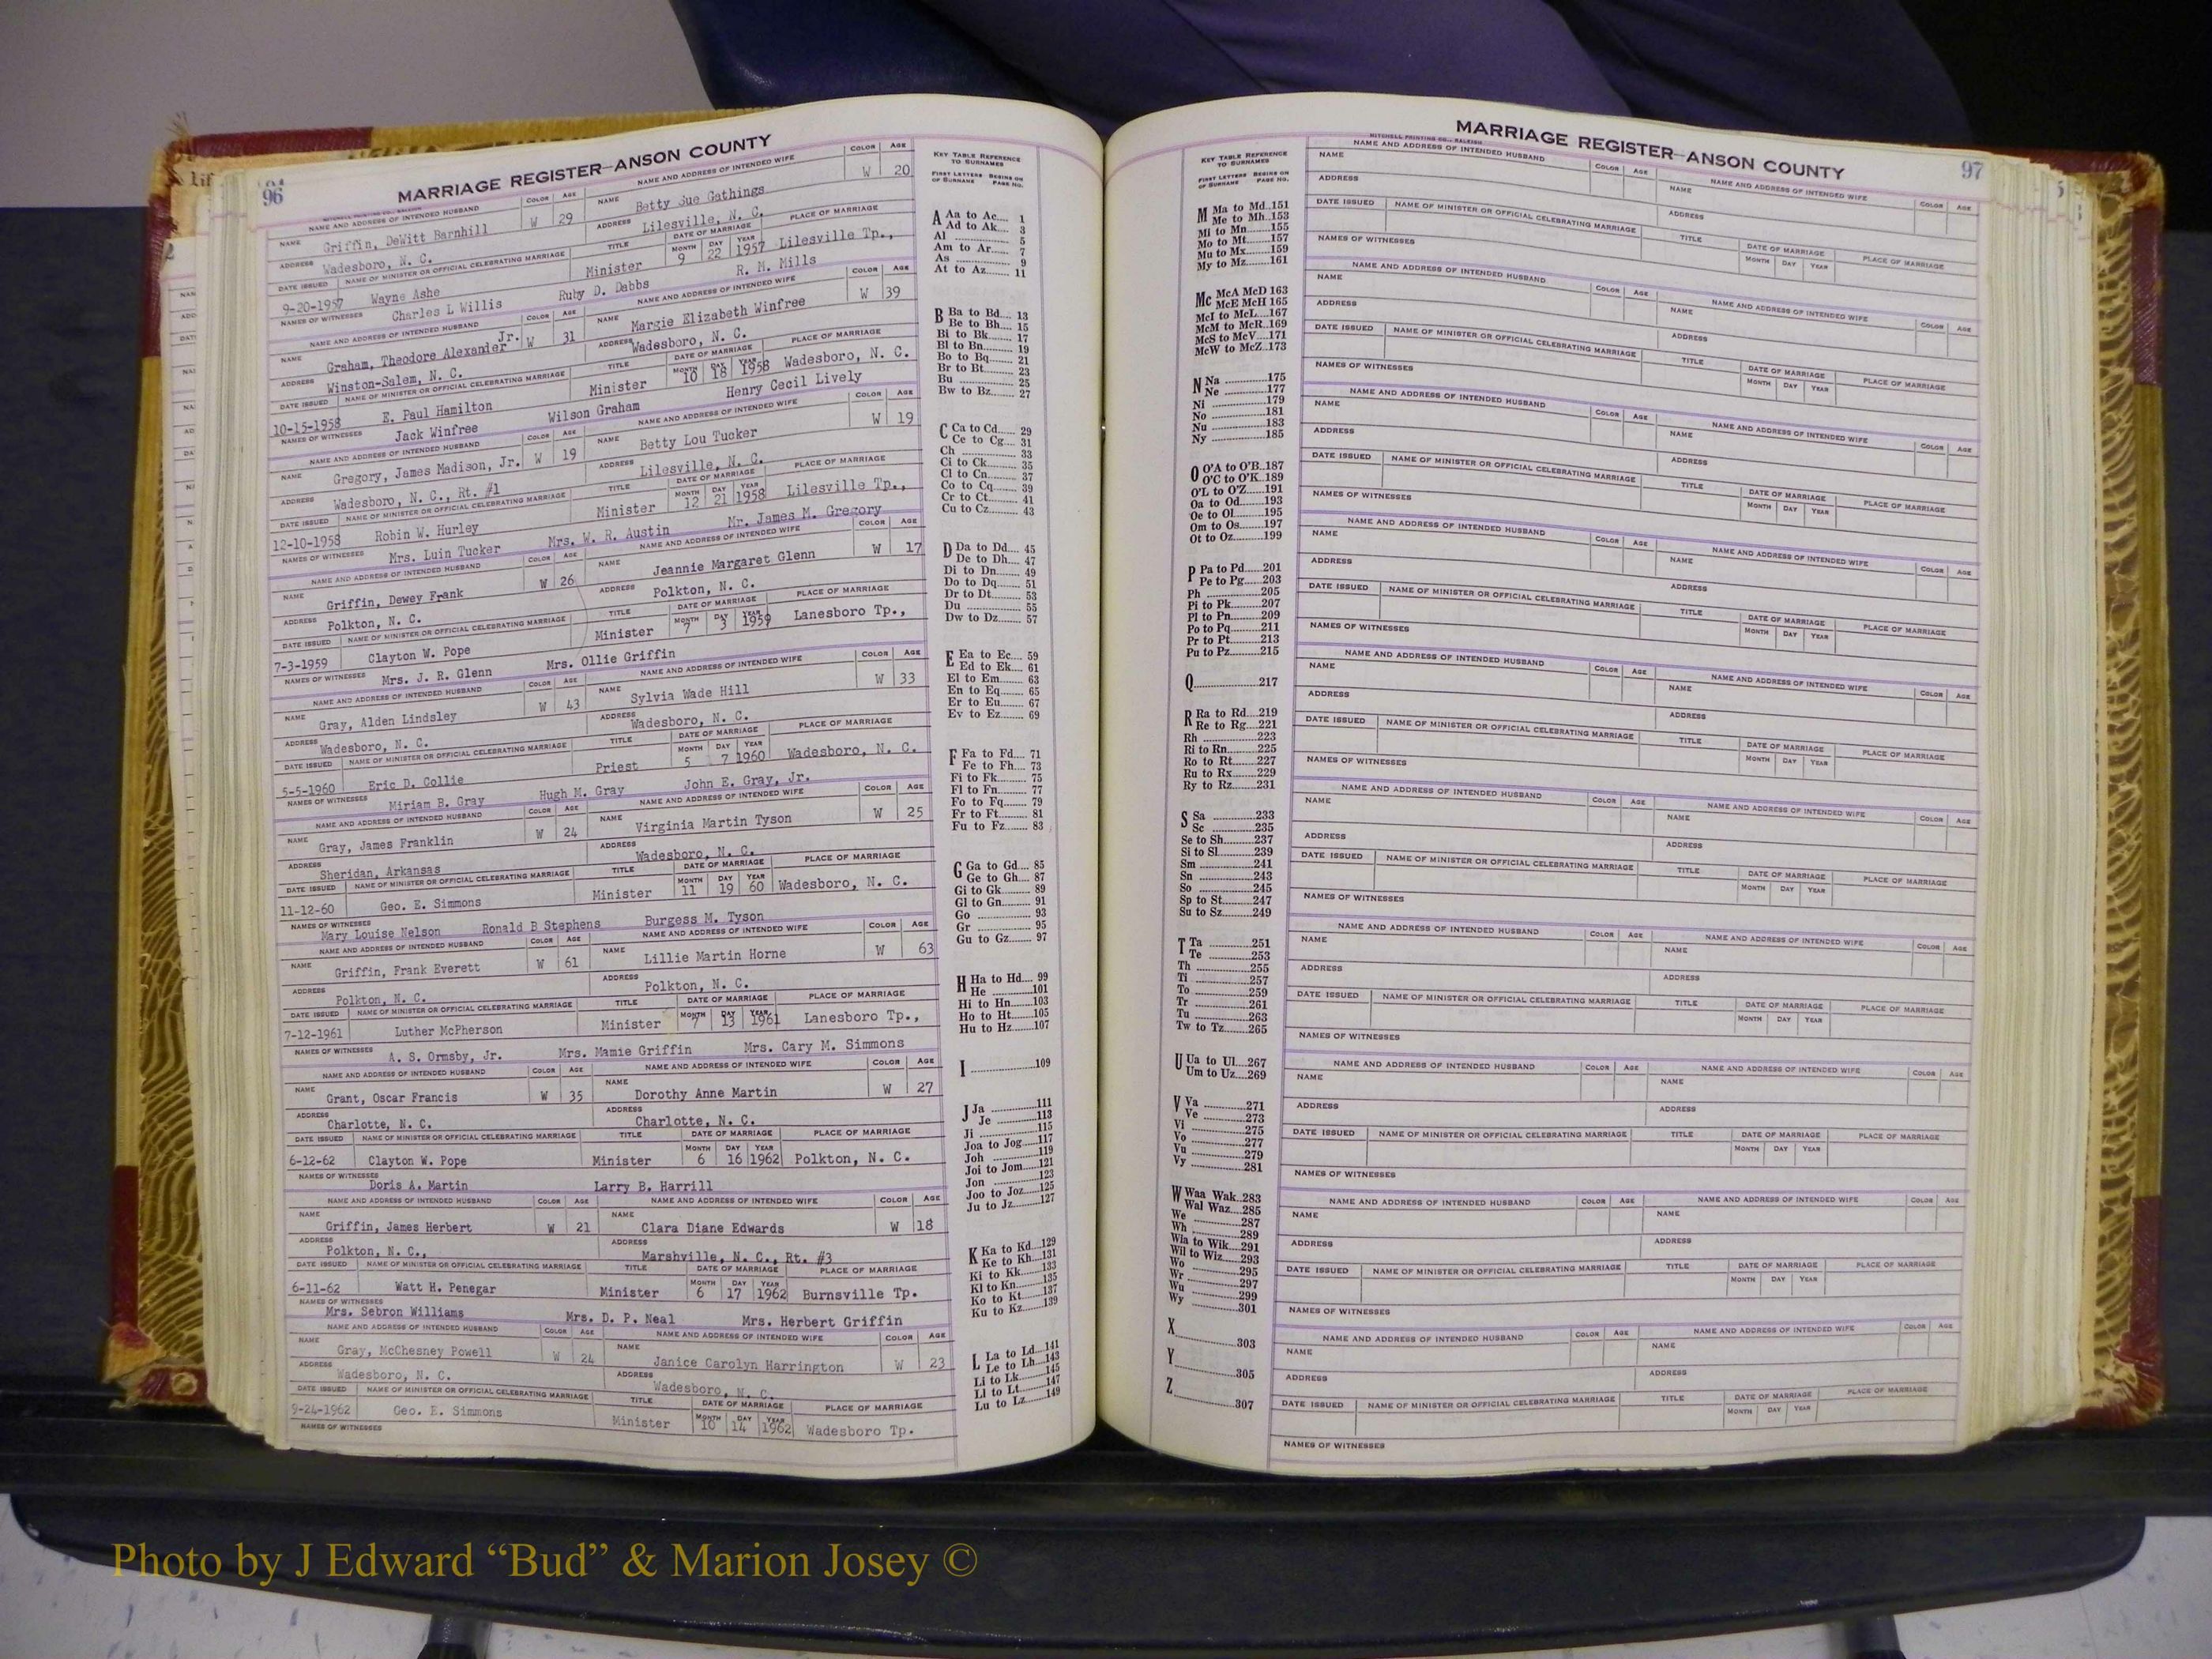 96
MARRIAGE REGISTER—ANSON COUNTY
NAME AND ADDRESS OF INTENDED HUSBAND COLOR AGE NAME AND ADDRESS OF INTENDED WIFE COLOR AGE
NAME Griffin, DeWitt Barnhill W 29 NAME Betty Sue Gathings W 20
ADDRESS Wadesboro, N. C. ADDRESS Lilesville, N. C.
DATE ISSUED NAME OF MINISTER OR OFFICIAL CELEBRATING MARRIAGE TITLE DATE OF MARRIAGE MONTH DAY YEAR PLACE OF MARRIAGE
9-20-1957 Wayne Ashe Minister 9 22 1957 Lilesville Tp.,
NAMES OF WITNESSES Charles L Willis Ruby D. Dabbs R. M. Mills
NAME AND ADDRESS OF INTENDED HUSBAND COLOR AGE NAME AND ADDRESS OF INTENDED WIFE COLOR AGE
NAME Graham, Theodore Alexander Jr. W 31 NAME Margie Elizabeth Winfree W 39
ADDRESS Winston-Salem, N. C. ADDRESS Wadesboro, N. C.
DATE ISSUED NAME OF MINISTER OR OFFICIAL CELEBRATING MARRIAGE TITLE DATE OF MARRIAGE MONTH DAY YEAR PLACE OF MARRIAGE
10-15-1958 E. Paul Hamilton Minister 10 18 1958 Wadesboro, N. C.
NAMES OF WITNESSES Jack Winfree Wilson Graham Henry Cecil Lively
NAME AND ADDRESS OF INTENDED HUSBAND COLOR AGE NAME AND ADDRESS OF INTENDED WIFE COLOR AGE
NAME Gregory, James Madison, Jr. W 19 NAME Betty Lou Tucker W 19
ADDRESS Wadesboro, N. C., Rt. #1 ADDRESS Lilesville, N. C.
DATE ISSUED NAME OF MINISTER OR OFFICIAL CELEBRATING MARRIAGE TITLE DATE OF MARRIAGE MONTH DAY YEAR PLACE OF MARRIAGE
12-10-1958 Robin W. Hurley Minister 12 21 1958 Lilesville Tp.,
NAMES OF WITNESSES Mrs. Luin Tucker Mrs. W. R. Austin Mr. James M. Gregory
NAME AND ADDRESS OF INTENDED HUSBAND COLOR AGE NAME AND ADDRESS OF INTENDED WIFE COLOR AGE
NAME Griffin, Dewey Frank W 26 NAME Jeannie Margaret Glenn W 17
ADDRESS Polkton, N. C. ADDRESS Polkton, N. C.
DATE ISSUED NAME OF MINISTER OR OFFICIAL CELEBRATING MARRIAGE TITLE DATE OF MARRIAGE MONTH DAY YEAR PLACE OF MARRIAGE
7-3-1959 Clayton W. Pope Minister 7 3 1959 Lanesboro Tp.,
NAMES OF WITNESSES Mrs. J. R. Glenn Mrs. Ollie Griffin
NAME AND ADDRESS OF INTENDED HUSBAND COLOR AGE NAME AND ADDRESS OF INTENDED WIFE COLOR AGE
NAME Gray, Alden Lindsley W 43 NAME Sylvia Wade Hill W 33
ADDRESS Wadesboro, N. C. ADDRESS Wadesboro, N. C.
DATE ISSUED NAME OF MINISTER OR OFFICIAL CELEBRATING MARRIAGE TITLE DATE OF MARRIAGE MONTH DAY YEAR PLACE OF MARRIAGE
5-5-1960 Eric D. Collie Priest 5 7 1960 Wadesboro, N. C.
NAMES OF WITNESSES Miriam B. Gray Hugh M. Gray John E. Gray, Jr.
NAME AND ADDRESS OF INTENDED HUSBAND COLOR AGE NAME AND ADDRESS OF INTENDED WIFE COLOR AGE
NAME Gray, James Franklin W 24 NAME Virginia Martin Tyson W 25
ADDRESS Sheridan, Arkansas ADDRESS Wadesboro, N. C.
DATE ISSUED NAME OF MINISTER OR OFFICIAL CELEBRATING MARRIAGE TITLE DATE OF MARRIAGE MONTH DAY YEAR PLACE OF MARRIAGE
11-12-60 Geo. E. Simmons Minister 11 19 60 Wadesboro, N. C.
NAMES OF WITNESSES Mary Louise Nelson Ronald B Stephens Burgess M. Tyson
NAME AND ADDRESS OF INTENDED HUSBAND COLOR AGE NAME AND ADDRESS OF INTENDED WIFE COLOR AGE
NAME Griffin, Frank Everett W 61 NAME Lillie Martin Horne W 63
ADDRESS Polkton, N. C. ADDRESS Polkton, N. C.
DATE ISSUED NAME OF MINISTER OR OFFICIAL CELEBRATING MARRIAGE TITLE DATE OF MARRIAGE MONTH DAY YEAR PLACE OF MARRIAGE
7-12-1961 Luther McPherson Minister 7 13 1961 Lanesboro Tp.,
NAMES OF WITNESSES A. S. Ormsby, Jr. Mrs. Mamie Griffin Mrs. Cary M. Simmons
NAME AND ADDRESS OF INTENDED HUSBAND COLOR AGE NAME AND ADDRESS OF INTENDED WIFE COLOR AGE
NAME Grant, Oscar Francis W 35 NAME Dorothy Anne Martin W 27
ADDRESS Charlotte, N. C. ADDRESS Charlotte, N. C.
DATE ISSUED NAME OF MINISTER OR OFFICIAL CELEBRATING MARRIAGE TITLE DATE OF MARRIAGE MONTH DAY YEAR PLACE OF MARRIAGE
6-12-62 Clayton W. Pope Minister 6 16 1962 Polkton, N. C.
NAMES OF WITNESSES Doris A. Martin Larry B. Harrill
NAME AND ADDRESS OF INTENDED HUSBAND COLOR AGE NAME AND ADDRESS OF INTENDED WIFE COLOR AGE
NAME Griffin, James Herbert W 21 NAME Clara Diane Edwards W 18
ADDRESS Polkton, N. C., ADDRESS Marshville, N. C., Rt. #3
DATE ISSUED NAME OF MINISTER OR OFFICIAL CELEBRATING MARRIAGE TITLE DATE OF MARRIAGE MONTH DAY YEAR PLACE OF MARRIAGE
6-11-62 Watt H. Penegar Minister 6 17 1962 Burnsville Tp.
NAMES OF WITNESSES Mrs. Sebron Williams Mrs. D. P. Neal Mrs. Herbert Griffin
NAME AND ADDRESS OF INTENDED HUSBAND COLOR AGE NAME AND ADDRESS OF INTENDED WIFE COLOR AGE
NAME Gray, McChesney Powell W 24 NAME Janice Carolyn Harrington W 23
ADDRESS Wadesboro, N. C. ADDRESS Wadesboro, N. C.
DATE ISSUED NAME OF MINISTER OR OFFICIAL CELEBRATING MARRIAGE TITLE DATE OF MARRIAGE MONTH DAY YEAR PLACE OF MARRIAGE
9-24-1962 Geo. E. Simmons Minister 10 14 1962 Wadesboro Tp.
NAMES OF WITNESSES
KEY TABLE REFERENCE
TO SURNAMES
FIRST LETTERS BEGINS ON
OF SURNAME PAGE NO.
A Aa to Ac.... 1
Ad to Ak.... 3
Al .............. 5
Am to Ar....... 7
As .............. 9
At to Az....... 11
B Ba to Bd.... 13
Be to Bh.... 15
Bi to Bk....... 17
Bl to Bn....... 19
Bo to Bq....... 21
Br to Bt....... 23
Bu .............. 25
Bw to Bz....... 27
C Ca to Cd.... 29
Ce to Cg.... 31
Ch .............. 33
Ci to Ck....... 35
Cl to Cn....... 37
Co to Cq....... 39
Cr to Ct....... 41
Cu to Cz....... 43
D Da to Dd.... 45
De to Dh.... 47
Di to Dn....... 49
Do to Dq....... 51
Dr to Dt....... 53
Du .............. 55
Dw to Dz....... 57
E Ea to Ec.... 59
Ed to Ek.... 61
El to Em....... 63
En to Eq....... 65
Er to Eu....... 67
Ev to Ez....... 69
F Fa to Fd.... 71
Fe to Fh.... 73
Fi to Fk....... 75
Fl to Fn....... 77
Fo to Fq....... 79
Fr to Ft....... 81
Fu to Fz....... 83
G Ga to Gd.... 85
Ge to Gh.... 87
Gi to Gk....... 89
Gl to Gn....... 91
Go .............. 93
Gr .............. 95
Gu to Gz....... 97
H Ha to Hd.... 99
He ..............101
Hi to Hn.......103
Ho to Ht.......105
Hu to Hz.......107
I ....................109
J Ja ..............111
Je ..............113
Ji ..............115
Joa to Jog.....117
Joh ..............119
Joi to Jom.....121
Jon ..............123
Joo to Joz.....125
Ju to Jz.......127
K Ka to Kd....129
Ke to Kh....131
Ki to Kk.......133
Kl to Kn.......135
Ko to Kt.......137
Ku to Kz.......139
L La to Ld....141
Le to Lh....143
Li to Lk.......145
Ll to Lt.......147
Lu to Lz.......149
MARRIAGE REGISTER—ANSON COUNTY
97
MITCHELL PRINTING CO., RALEIGH
KEY TABLE REFERENCE
TO SURNAMES
FIRST LETTERS BEGINS ON
OF SURNAME PAGE NO.
M Ma to Md..151
Me to Mh..153
Mi to Mn.......155
Mo to Mt.......157
Mu to Mx.......159
My to Mz.......161
Mc McA McD 163
McE McH 165
McI to McL....167
McM to McR..169
McS to McV....171
McW to McZ..173
N Na ............175
Ne ............177
Ni ..............179
No ..............181
Nu ..............183
Ny ..............185
O O'A to O'B..187
O'C to O'K..189
O'L to O'Z.....191
Oa to Od.......193
Oe to Ol.......195
Om to Os.......197
Ot to Oz.......199
P Pa to Pd.....201
Pe to Pg.....203
Ph ..............205
Pi to Pk.......207
Pl to Pn.......209
Po to Pq.......211
Pr to Pt.......213
Pu to Pz.......215
Q....................217
R Ra to Rd....219
Re to Rg....221
Rh ..............223
Ri to Rn.......225
Ro to Rt.......227
Ru to Rx.......229
Ry to Rz.......231
S Sa ............233
Sc ............235
Se to Sh.......237
Si to Sl.......239
Sm ..............241
Sn ..............243
So ..............245
Sp to St.......247
Su to Sz.......249
T Ta ............251
Te ............253
Th ..............255
Ti ..............257
To ..............259
Tr ..............261
Tu ..............263
Tw to Tz.......265
U Ua to Ul....267
Um to Uz....269
V Va ............271
Ve ............273
Vi ..............275
Vo ..............277
Vu ..............279
Vy ..............281
W Waa Wak..283
Wal Waz....285
We ..............287
Wh ..............289
Wia to Wik....291
Wil to Wiz....293
Wo ..............295
Wr ..............297
Wu ..............299
Wy ..............301
X....................303
Y....................305
Z....................307
NAME AND ADDRESS OF INTENDED HUSBAND COLOR AGE NAME AND ADDRESS OF INTENDED WIFE COLOR AGE
NAME NAME
ADDRESS ADDRESS
DATE ISSUED NAME OF MINISTER OR OFFICIAL CELEBRATING MARRIAGE TITLE DATE OF MARRIAGE MONTH DAY YEAR PLACE OF MARRIAGE
NAMES OF WITNESSES
NAME AND ADDRESS OF INTENDED HUSBAND COLOR AGE NAME AND ADDRESS OF INTENDED WIFE COLOR AGE
NAME NAME
ADDRESS ADDRESS
DATE ISSUED NAME OF MINISTER OR OFFICIAL CELEBRATING MARRIAGE TITLE DATE OF MARRIAGE MONTH DAY YEAR PLACE OF MARRIAGE
NAMES OF WITNESSES
NAME AND ADDRESS OF INTENDED HUSBAND COLOR AGE NAME AND ADDRESS OF INTENDED WIFE COLOR AGE
NAME NAME
ADDRESS ADDRESS
DATE ISSUED NAME OF MINISTER OR OFFICIAL CELEBRATING MARRIAGE TITLE DATE OF MARRIAGE MONTH DAY YEAR PLACE OF MARRIAGE
NAMES OF WITNESSES
NAME AND ADDRESS OF INTENDED HUSBAND COLOR AGE NAME AND ADDRESS OF INTENDED WIFE COLOR AGE
NAME NAME
ADDRESS ADDRESS
DATE ISSUED NAME OF MINISTER OR OFFICIAL CELEBRATING MARRIAGE TITLE DATE OF MARRIAGE MONTH DAY YEAR PLACE OF MARRIAGE
NAMES OF WITNESSES
NAME AND ADDRESS OF INTENDED HUSBAND COLOR AGE NAME AND ADDRESS OF INTENDED WIFE COLOR AGE
NAME NAME
ADDRESS ADDRESS
DATE ISSUED NAME OF MINISTER OR OFFICIAL CELEBRATING MARRIAGE TITLE DATE OF MARRIAGE MONTH DAY YEAR PLACE OF MARRIAGE
NAMES OF WITNESSES
NAME AND ADDRESS OF INTENDED HUSBAND COLOR AGE NAME AND ADDRESS OF INTENDED WIFE COLOR AGE
NAME NAME
ADDRESS ADDRESS
DATE ISSUED NAME OF MINISTER OR OFFICIAL CELEBRATING MARRIAGE TITLE DATE OF MARRIAGE MONTH DAY YEAR PLACE OF MARRIAGE
NAMES OF WITNESSES
NAME AND ADDRESS OF INTENDED HUSBAND COLOR AGE NAME AND ADDRESS OF INTENDED WIFE COLOR AGE
NAME NAME
ADDRESS ADDRESS
DATE ISSUED NAME OF MINISTER OR OFFICIAL CELEBRATING MARRIAGE TITLE DATE OF MARRIAGE MONTH DAY YEAR PLACE OF MARRIAGE
NAMES OF WITNESSES
NAME AND ADDRESS OF INTENDED HUSBAND COLOR AGE NAME AND ADDRESS OF INTENDED WIFE COLOR AGE
NAME NAME
ADDRESS ADDRESS
DATE ISSUED NAME OF MINISTER OR OFFICIAL CELEBRATING MARRIAGE TITLE DATE OF MARRIAGE MONTH DAY YEAR PLACE OF MARRIAGE
NAMES OF WITNESSES
NAME AND ADDRESS OF INTENDED HUSBAND COLOR AGE NAME AND ADDRESS OF INTENDED WIFE COLOR AGE
NAME NAME
ADDRESS ADDRESS
DATE ISSUED NAME OF MINISTER OR OFFICIAL CELEBRATING MARRIAGE TITLE DATE OF MARRIAGE MONTH DAY YEAR PLACE OF MARRIAGE
NAMES OF WITNESSES
NAME AND ADDRESS OF INTENDED HUSBAND COLOR AGE NAME AND ADDRESS OF INTENDED WIFE COLOR AGE
NAME NAME
ADDRESS ADDRESS
DATE ISSUED NAME OF MINISTER OR OFFICIAL CELEBRATING MARRIAGE TITLE DATE OF MARRIAGE MONTH DAY YEAR PLACE OF MARRIAGE
NAMES OF WITNESSES
Photo by J Edward “Bud” & Marion Josey ©